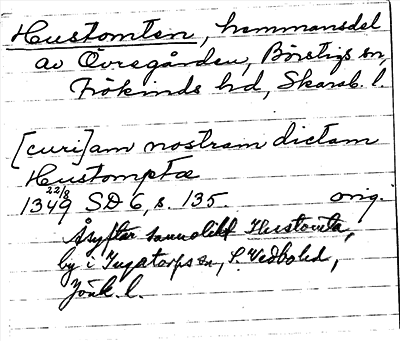 Hustomten, hemmansdel
av Övregården, Börstigs sn,
Frökinds hd, Skarab. l.
[curi]am nostram dictam
Hustomptæ
1349 22/8 SD 6, s. 135. orig.
Åsyftar sannolikt Hustomta,
by i Ingatorps sn, S. Vedbo hd,
Jönk. l.